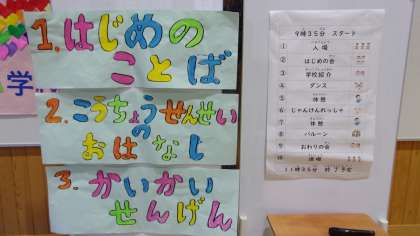 学
1.はじめの
ことば
2.こうちょうせんせい
の
おはなし
3.かいかい
せんげん
9時35分 スタート
① 入場
② はじめの会
③ 学校紹介
④ ダンス
⑤ 休憩
⑥ じゃんけんれっしゃ
⑦ 休憩
⑧ バルーン
⑨ おわりの会
⑩ 退場
11時35分 終了予定